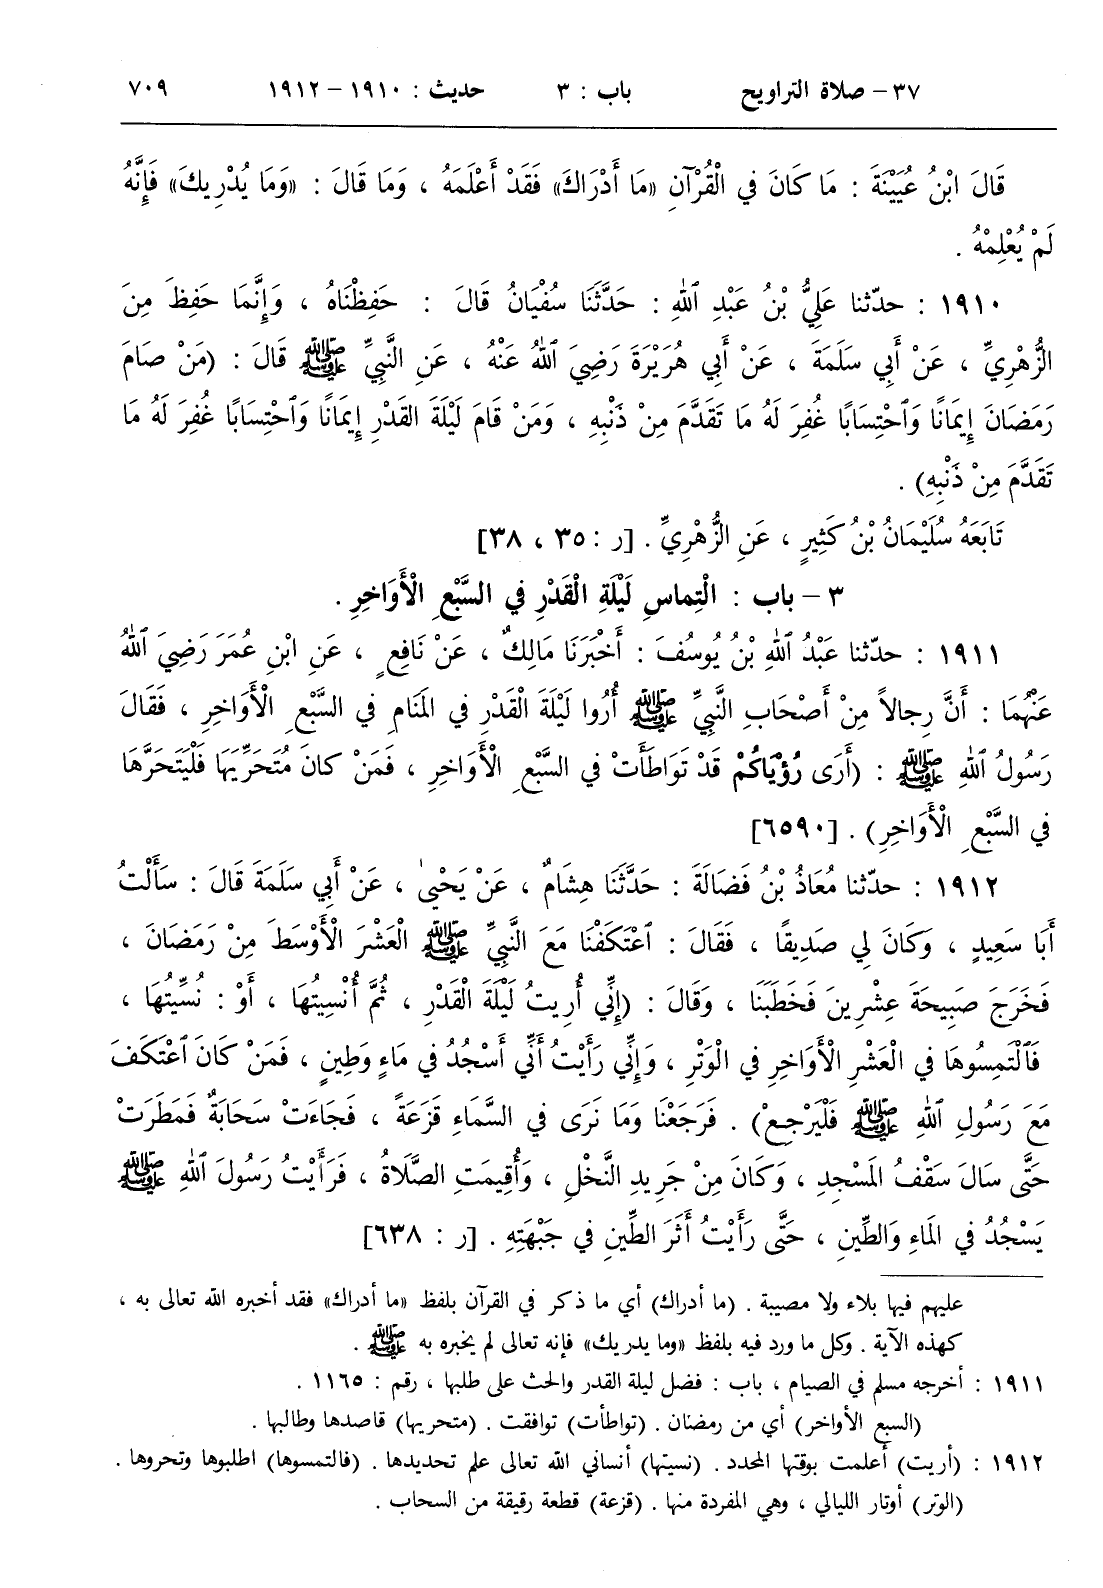 ٣٧ - صلاة التراويح باب : ٣ حديث : ١٩١٠ - ١٩١٢ ٧٠٩
قَالَ ابْنُ عُيَيْنَةَ : مَا كَانَ فِي الْقُرْآنِ «مَا أَدْرَاكَ» فَقَدْ أَعْلَمَهُ ، وَمَا قَالَ : «وَمَا يُدْرِيكَ» فَإِنَّهُ
لَمْ يُعْلِمْهُ .
١٩١٠ : حدّثنا عَلِيُّ بْنُ عَبْدِ اللهِ : حَدَّثَنَا سُفْيَانُ قَالَ : حَفِظْنَاهُ ، وَإِنَّمَا حَفِظَ مِنَ
الزُّهْرِيِّ ، عَنْ أَبِي سَلَمَةَ ، عَنْ أَبِي هُرَيْرَةَ رَضِيَ اللهُ عَنْهُ ، عَنِ النَّبِيِّ ﷺ قَالَ : (مَنْ صَامَ
رَمَضَانَ إِيمَانًا وَٱحْتِسَابًا غُفِرَ لَهُ مَا تَقَدَّمَ مِنْ ذَنْبِهِ ، وَمَنْ قَامَ لَيْلَةَ القَدْرِ إِيمَانًا وَٱحْتِسَابًا غُفِرَ لَهُ مَا
تَقَدَّمَ مِنْ ذَنْبِهِ) .
تَابَعَهُ سُلَيْمَانُ بْنُ كَثِيرٍ ، عَنِ الزُّهْرِيِّ . [ر : ٣٥ ، ٣٨]
٣ - باب : الْتِماسِ لَيْلَةِ الْقَدْرِ فِي السَّبْعِ الْأَوَاخِرِ .
١٩١١ : حدّثنا عَبْدُ ٱللهِ بْنُ يُوسُفَ : أَخْبَرَنَا مَالِكٌ ، عَنْ نَافِعٍ ، عَنِ ابْنِ عُمَرَ رَضِيَ ٱللهُ
عَنْهُمَا : أَنَّ رِجالاً مِنْ أَصْحَابِ النَّبِيِّ ﷺ أُرُوا لَيْلَةَ الْقَدْرِ فِي المَنَامِ فِي السَّبْعِ الْأَوَاخِرِ ، فَقَالَ
رَسُولُ ٱللهِ ﷺ : (أَرَى رُؤْيَاكُمْ قَدْ تَوَاطَأَتْ فِي السَّبْعِ الْأَوَاخِرِ ، فَمَنْ كانَ مُتَحَرِّيهَا فَلْيَتَحَرَّهَا
فِي السَّبْعِ الْأَوَاخِرِ) . [٦٥٩٠]
١٩١٢ : حدّثنا مُعَاذُ بْنُ فَضَالَةَ : حَدَّثَنَا هِشَامٌ ، عَنْ يَحْيىٰ ، عَنْ أَبِي سَلَمَةَ قَالَ : سَأَلْتُ
أَبَا سَعِيدٍ ، وَكَانَ لِي صَدِيقًا ، فَقَالَ : ٱعْتَكَفْنَا مَعَ النَّبِيِّ ﷺ الْعَشْرَ الْأَوْسَطَ مِنْ رَمَضَانَ ،
فَخَرَجَ صَبِيحَةَ عِشْرِينَ فَخَطَبَنَا ، وَقَالَ : (إِنِّي أُرِيتُ لَيْلَةَ الْقَدْرِ ، ثُمَّ أُنْسِيتُهَا ، أَوْ : نُسِّيتُهَا ،
فَٱلْتَمِسُوهَا فِي الْعَشْرِ الْأَوَاخِرِ فِي الْوَتْرِ ، وَإِنِّي رَأَيْتُ أَنِّي أَسْجُدُ فِي مَاءٍ وَطِينٍ ، فَمَنْ كَانَ ٱعْتَكَفَ
مَعَ رَسُولِ ٱللهِ ﷺ فَلْيَرْجِعْ) . فَرَجَعْنَا وَمَا نَرَى فِي السَّمَاءِ قَزَعَةً ، فَجَاءَتْ سَحَابَةٌ فَمَطَرَتْ
حَتَّى سَالَ سَقْفُ المَسْجِدِ ، وَكَانَ مِنْ جَرِيدِ النَّخْلِ ، وَأُقِيمَتِ الصَّلَاةُ ، فَرَأَيْتُ رَسُولَ ٱللهِ ﷺ
يَسْجُدُ فِي المَاءِ وَالطِّينِ ، حَتَّى رَأَيْتُ أَثَرَ الطِّينِ فِي جَبْهَتِهِ . [ر : ٦٣٨]
عليهم فيها بلاء ولا مصيبة . (ما أدراك) أي ما ذكر في القرآن بلفظ «ما أدراك» فقد أخبره الله تعالى به ،
كهذه الآية . وكل ما ورد فيه بلفظ «وما يدريك» فإنه تعالى لم يخبره به ﷺ .
١٩١١ : أخرجه مسلم في الصيام ، باب : فضل ليلة القدر والحث على طلبها ، رقم : ١١٦٥ .
(السبع الأواخر) أي من رمضان . (تواطأت) توافقت . (متحريها) قاصدها وطالبها .
١٩١٢ : (أريت) أعلمت بوقتها المحدد . (نسيتها) أنساني الله تعالى علم تحديدها . (فالتمسوها) اطلبوها وتحروها .
(الوتر) أوتار الليالي ، وهي المفردة منها . (قزعة) قطعة رقيقة من السحاب .